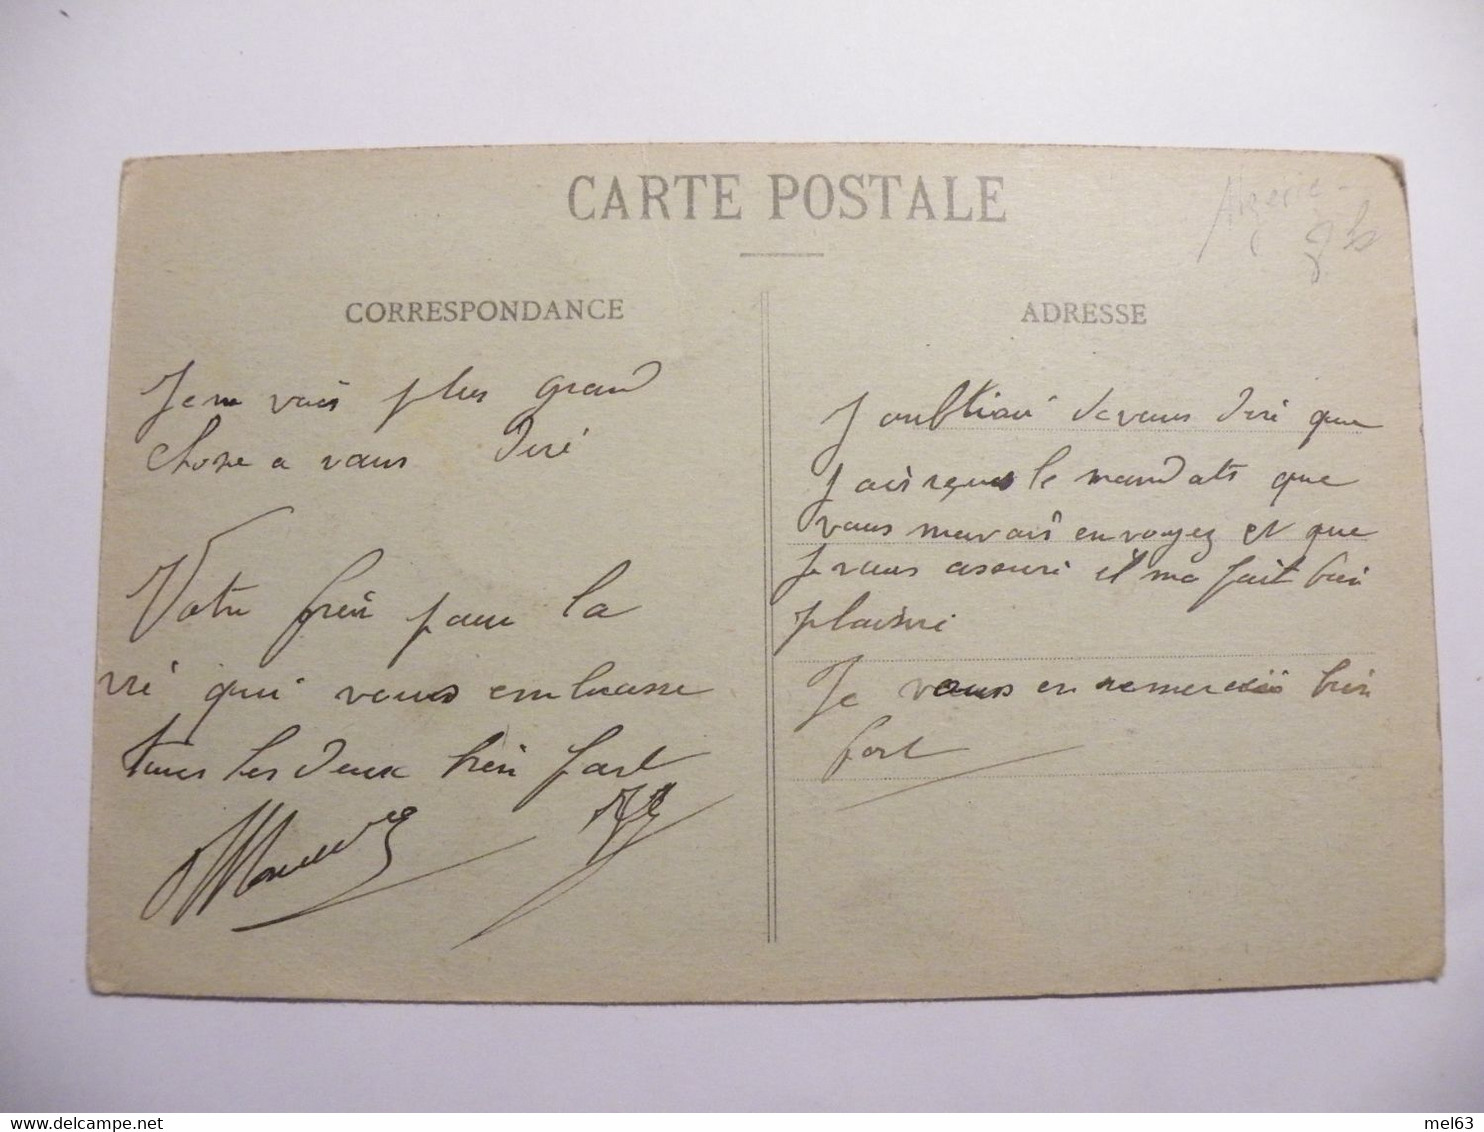 CARTE POSTALE
Algérie -
CORRESPONDANCE
Je ne vais plus grand
chose a vous diré
Votre frèir pour la
vié qui vous embrasse
tous les deux bièn fort
ADRESSE
J oubliai de vous diré que
j ais reçus le mandats que
vous mavais envoyez et que
je vous assuré il ma fait bien
plaisire
Je vous en remercie bièn
fort
mel63